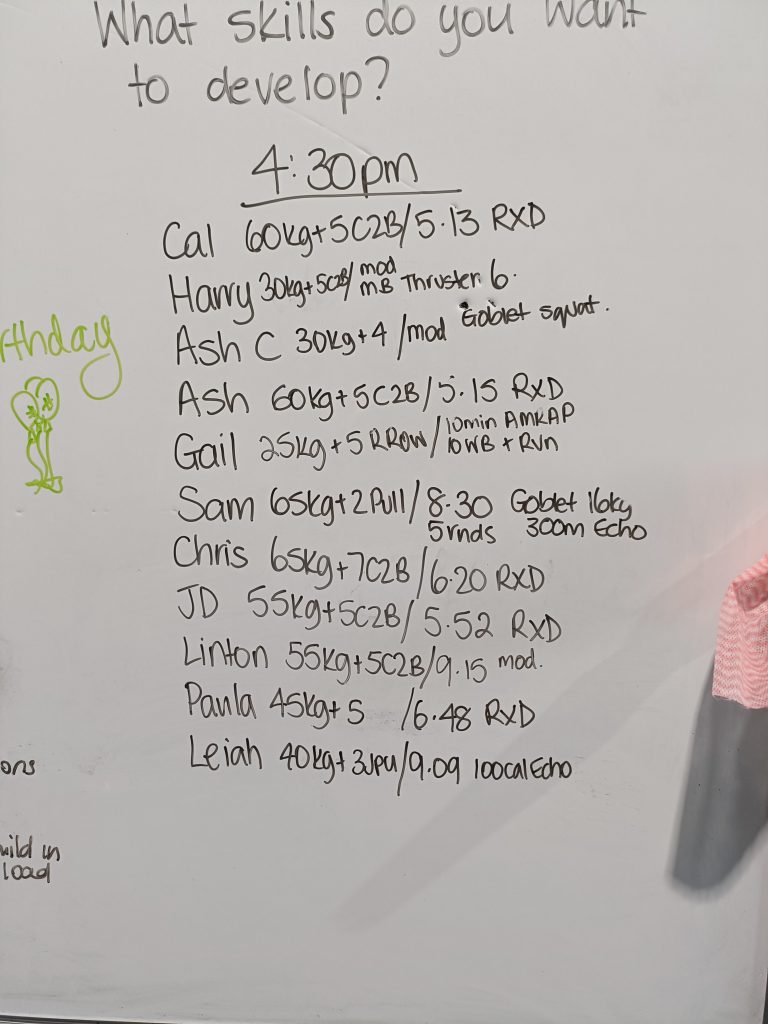 What skills do you want
to develop?
4:30pm
Cal 60kg+5C2B/5.13 RXD
Harry 30kg+5C2B/mod MB Thruster 6.
Ash C 30kg+4 /mod Goblet squat.
Ash 60kg+5C2B/5.15 RXD
Gail 25kg+5 RROW/10min AMRAP
10WB + Run
Sam 65kg+2Pull/8.30 Goblet 16kg
5rnds 300m Echo
Chris 65kg+7C2B/6.20 RXD
JD 55kg+5C2B/5.52 RXD
Linton 55kg+5C2B/9.15 mod.
Paula 45kg+5 /6.48 RXD
Leiah 40kg+3JPU/9.09 100calEcho
rthday
ons
uild in
load